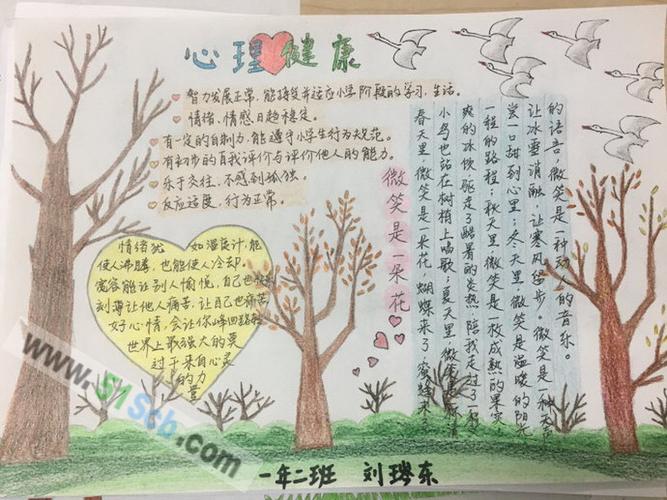 心理健康
智力发展正常,能接受并适应小学阶段的学习、生活。
情绪、情感日趋稳定。
有一定的自制力,能遵守小学生行为规范。
有初步的自我评价与评价他人的能力。
乐于交往,不感到孤独。
反应适度,行为正常。
微笑是一朵花
春天里,微笑是一朵花,蝴蝶来了
小鸟也站在树梢上唱歌;夏天里,微笑是
爽的冰块,驱走了酷暑的炎热,陪我走过了一
一程的路程;秋天里,微笑是一枚成熟的果实
尝一口甜到心里;冬天里,微笑是温暖的阳光
让冰雪消融,让寒风留步。微笑是一种
的语言,微笑是一种动人的音乐。
情绪犹如温度计,能
使人沸腾,也能使人冷却
宽容能让别人愉悦,自己也
刻薄让他人痛苦,让自己也痛苦
好心情,会让你峰回路转
世界上最强大的莫
过于来自心灵
的力
量
www.51Scb.com
一年二班 刘璎东